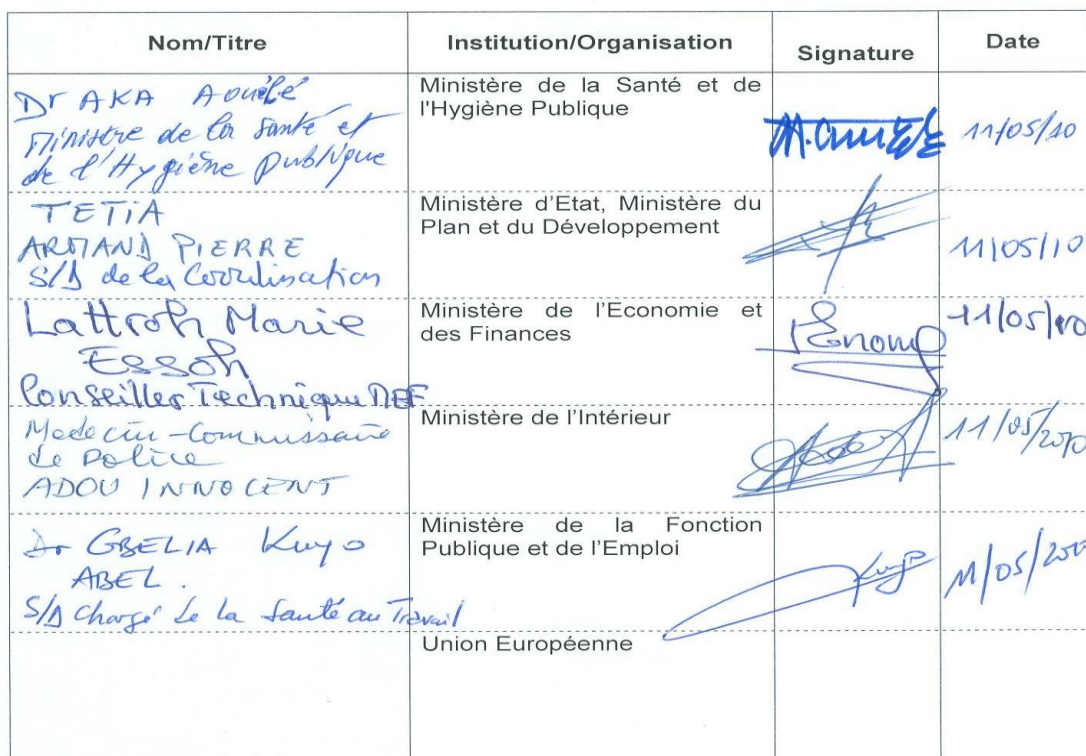 Nom/Titre Institution/Organisation Signature Date
Dr AKA Aouélé
Ministre de la Santé et
de l'Hygiène Publique
Ministère de la Santé et de
l'Hygiène Publique
11/05/10
TETIA
ARMAND PIERRE
S/D de la Coordination
Ministère d'Etat, Ministère du
Plan et du Développement
11/05/10
Lattroh Marie
Essoh
Conseiller Technique MEF
Ministère de l'Economie et
des Finances
11/05/10
Medecin-Commissaire
de Police
ADOU INNOCENT
Ministère de l'Intérieur
11/05/2010
Dr GBELIA Kuyo
ABEL.
S/D Chargé de la Santé au Travail
Ministère de la Fonction
Publique et de l'Emploi
Kuyo
11/05/
Union Européenne